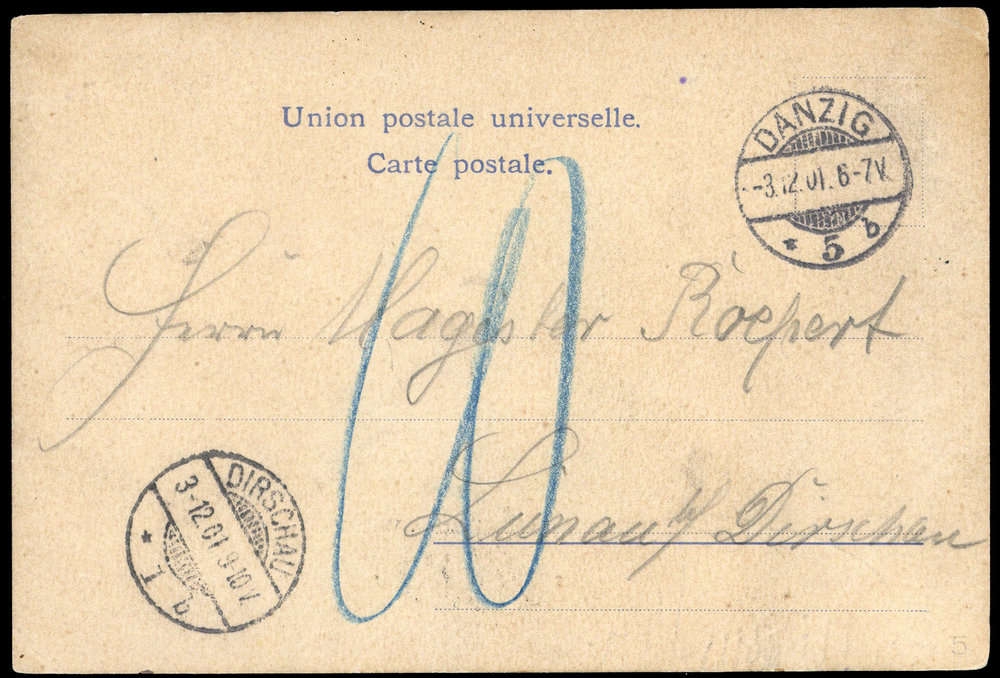 Union postale universelle.
Carte postale.
DANZIG
-3.12.01. 6-7V.
* 5 b
Herrn Magister Roepert
Lunau b/ Dirschau
DIRSCHAU
3-12.01 9-10V.
* 1 q
10
5